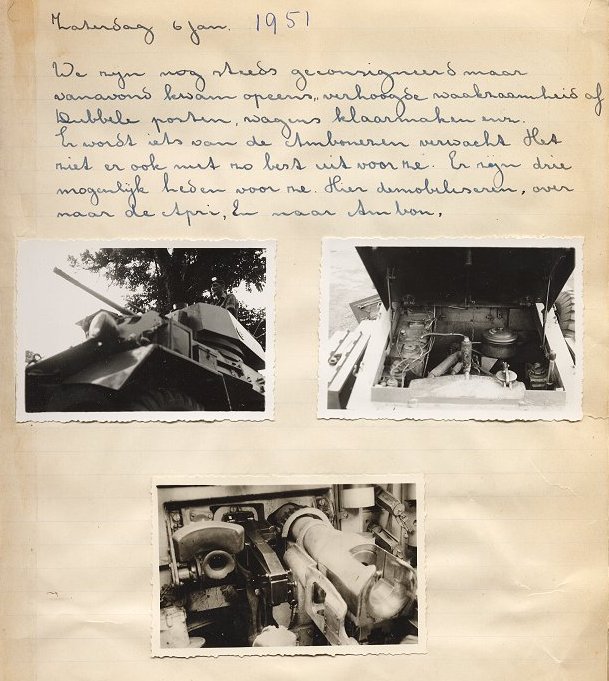 Zaterdag 6 Jan. 1951
We zijn nog steeds geconsigneerd maar
vanavond kwam opeens „verhoogde waakzaamheid of
Dubbele posten, wagens klaarmaken enz.
Er wordt iets van de Ambonezen verwacht Het
ziet er ook niet zo best uit voor ze. Er zijn drie
mogenlijk heden voor ze. Hier demobiliseren, over
naar de Apri, En naar Ambon,